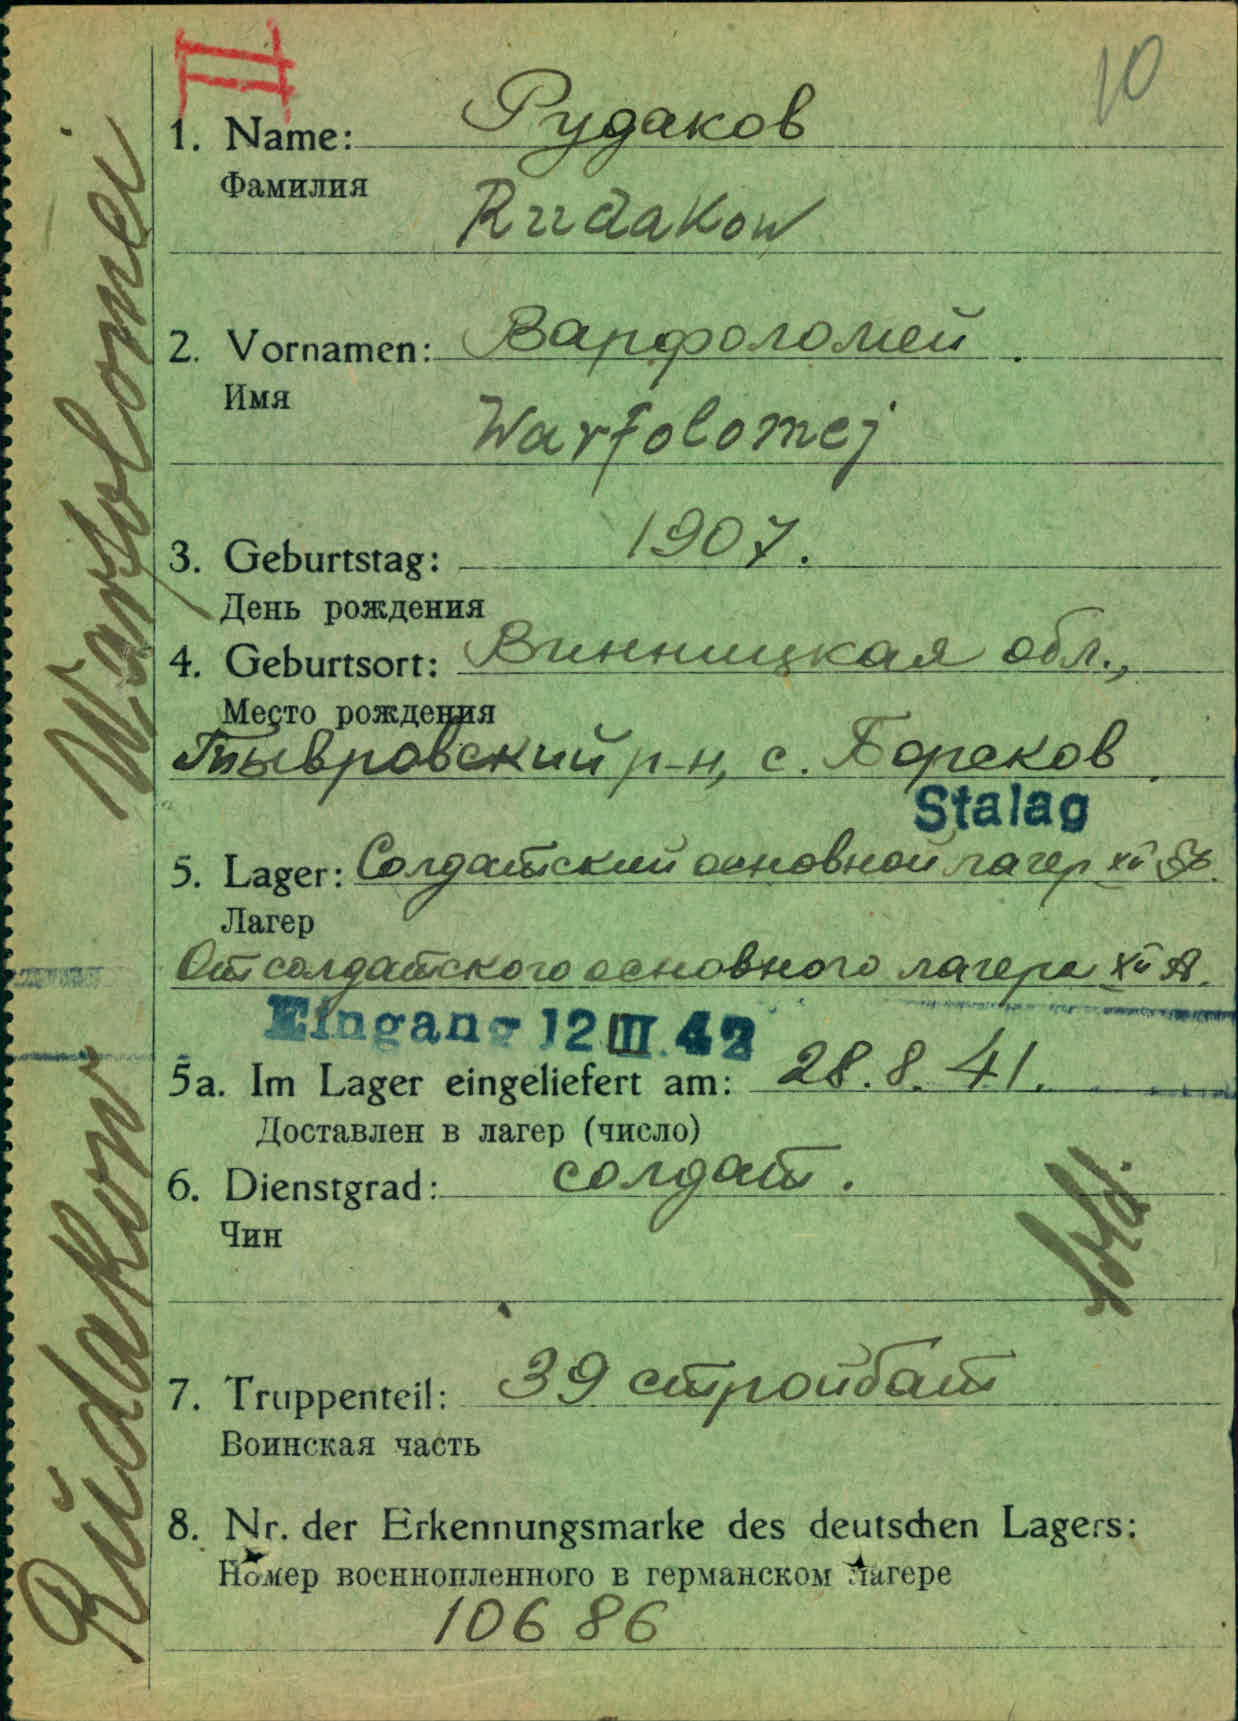 II
10
1. Name: Рудаков
Фамилия
Rudakow
2. Vornamen: Варфоломей.
Имя
Warfolomej
3. Geburtstag: 1907.
День рождения
4. Geburtsort: Винницкая обл.,
Место рождения
Тывровский р-н, с. Борсков.
Stalag
5. Lager: Солдатский основной лагер XII
Лагер
От солдатского основного лагера XII A.
Eingang 12 III. 42
5a. Im Lager eingeliefert am: 28.8.41.
Доставлен в лагер (число)
6. Dienstgrad: солдат.
Чин
Sold.
7. Truppenteil: 39 стройбат
Воинская часть
8. Nr. der Erkennungsmarke des deutschen Lagers:
Номер военнопленного в германском лагере
10686
Rudakow Warfolomei